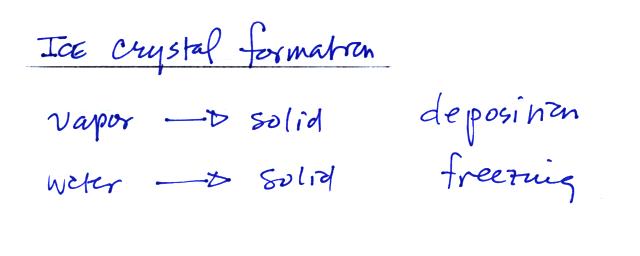 ICE crystal formation
vapor → solid deposition
water → solid freezing